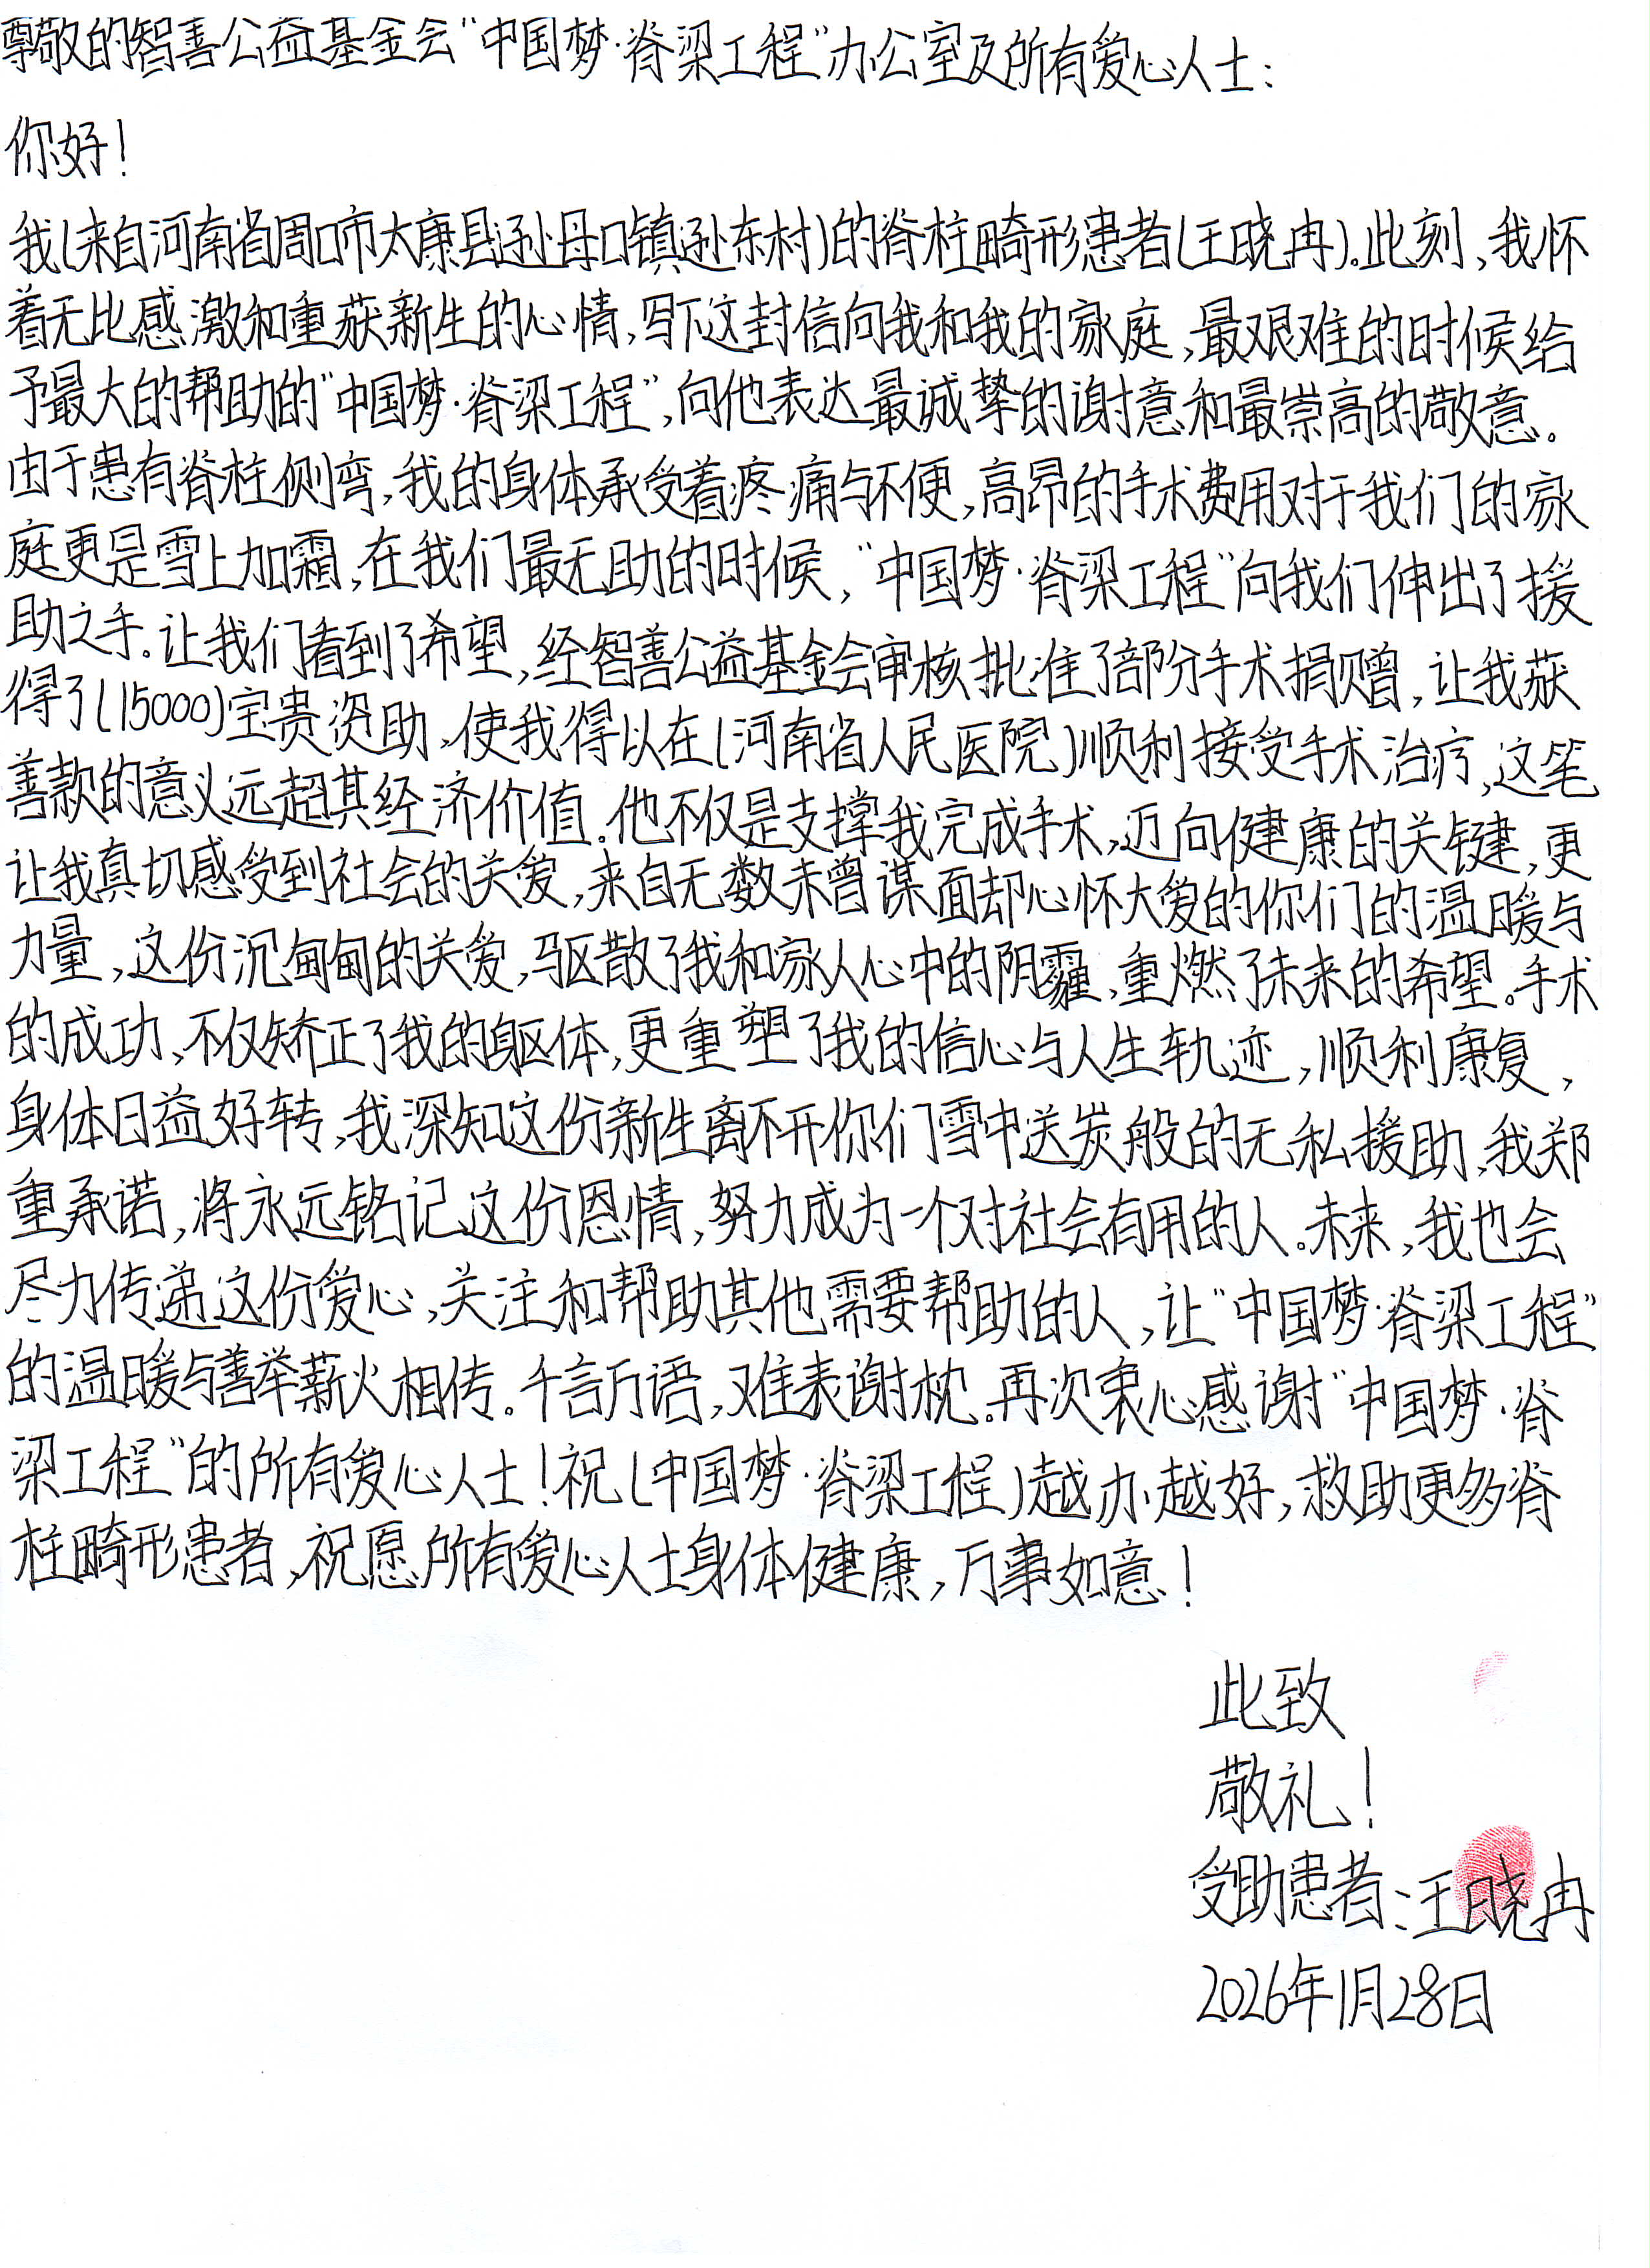 尊敬的智善公益基金会“中国梦·脊梁工程”办公室及所有爱心人士：
你好！
我（来自河南省周口市太康县逊母口镇逊东村）的脊柱畸形患者（王晓冉）。此刻，我怀
着无比感激和重获新生的心情，写下这封信向我和我的家庭，最艰难的时候给
予最大的帮助的“中国梦·脊梁工程”，向他表达最诚挚的谢意和最崇高的敬意。
由于患有脊柱侧弯，我的身体承受着疼痛与不便，高昂的手术费用对于我们的家
庭更是雪上加霜，在我们最无助的时候，“中国梦·脊梁工程”向我们伸出了援
助之手。让我们看到了希望，经智善公益基金会审核批准了部分手术捐赠，让我获
得了（15000）宝贵资助，使我得以在（河南省人民医院）顺利接受手术治疗，这笔
善款的意义远超其经济价值。他不仅是支撑我完成手术，迈向健康的关键，更
让我真切感受到社会的关爱，来自无数未曾谋面却心怀大爱的你们的温暖与
力量，这份沉甸甸的关爱，驱散了我和家人心中的阴霾，重燃了未来的希望。手术
的成功，不仅矫正了我的躯体，更重塑了我的信心与人生轨迹，顺利康复，
身体日益好转，我深知这份新生离不开你们雪中送炭般的无私援助，我郑
重承诺，将永远铭记这份恩情，努力成为一个对社会有用的人。未来，我也会
尽力传递这份爱心，关注和帮助其他需要帮助的人，让“中国梦·脊梁工程”
的温暖与善举薪火相传。千言万语，难表谢枕。再次衷心感谢“中国梦·脊
梁工程”的所有爱心人士！祝（中国梦·脊梁工程）越办越好，救助更多脊
柱畸形患者，祝愿所有爱心人士身体健康，万事如意！
此致
敬礼！
受助患者：王晓冉
2026年1月28日